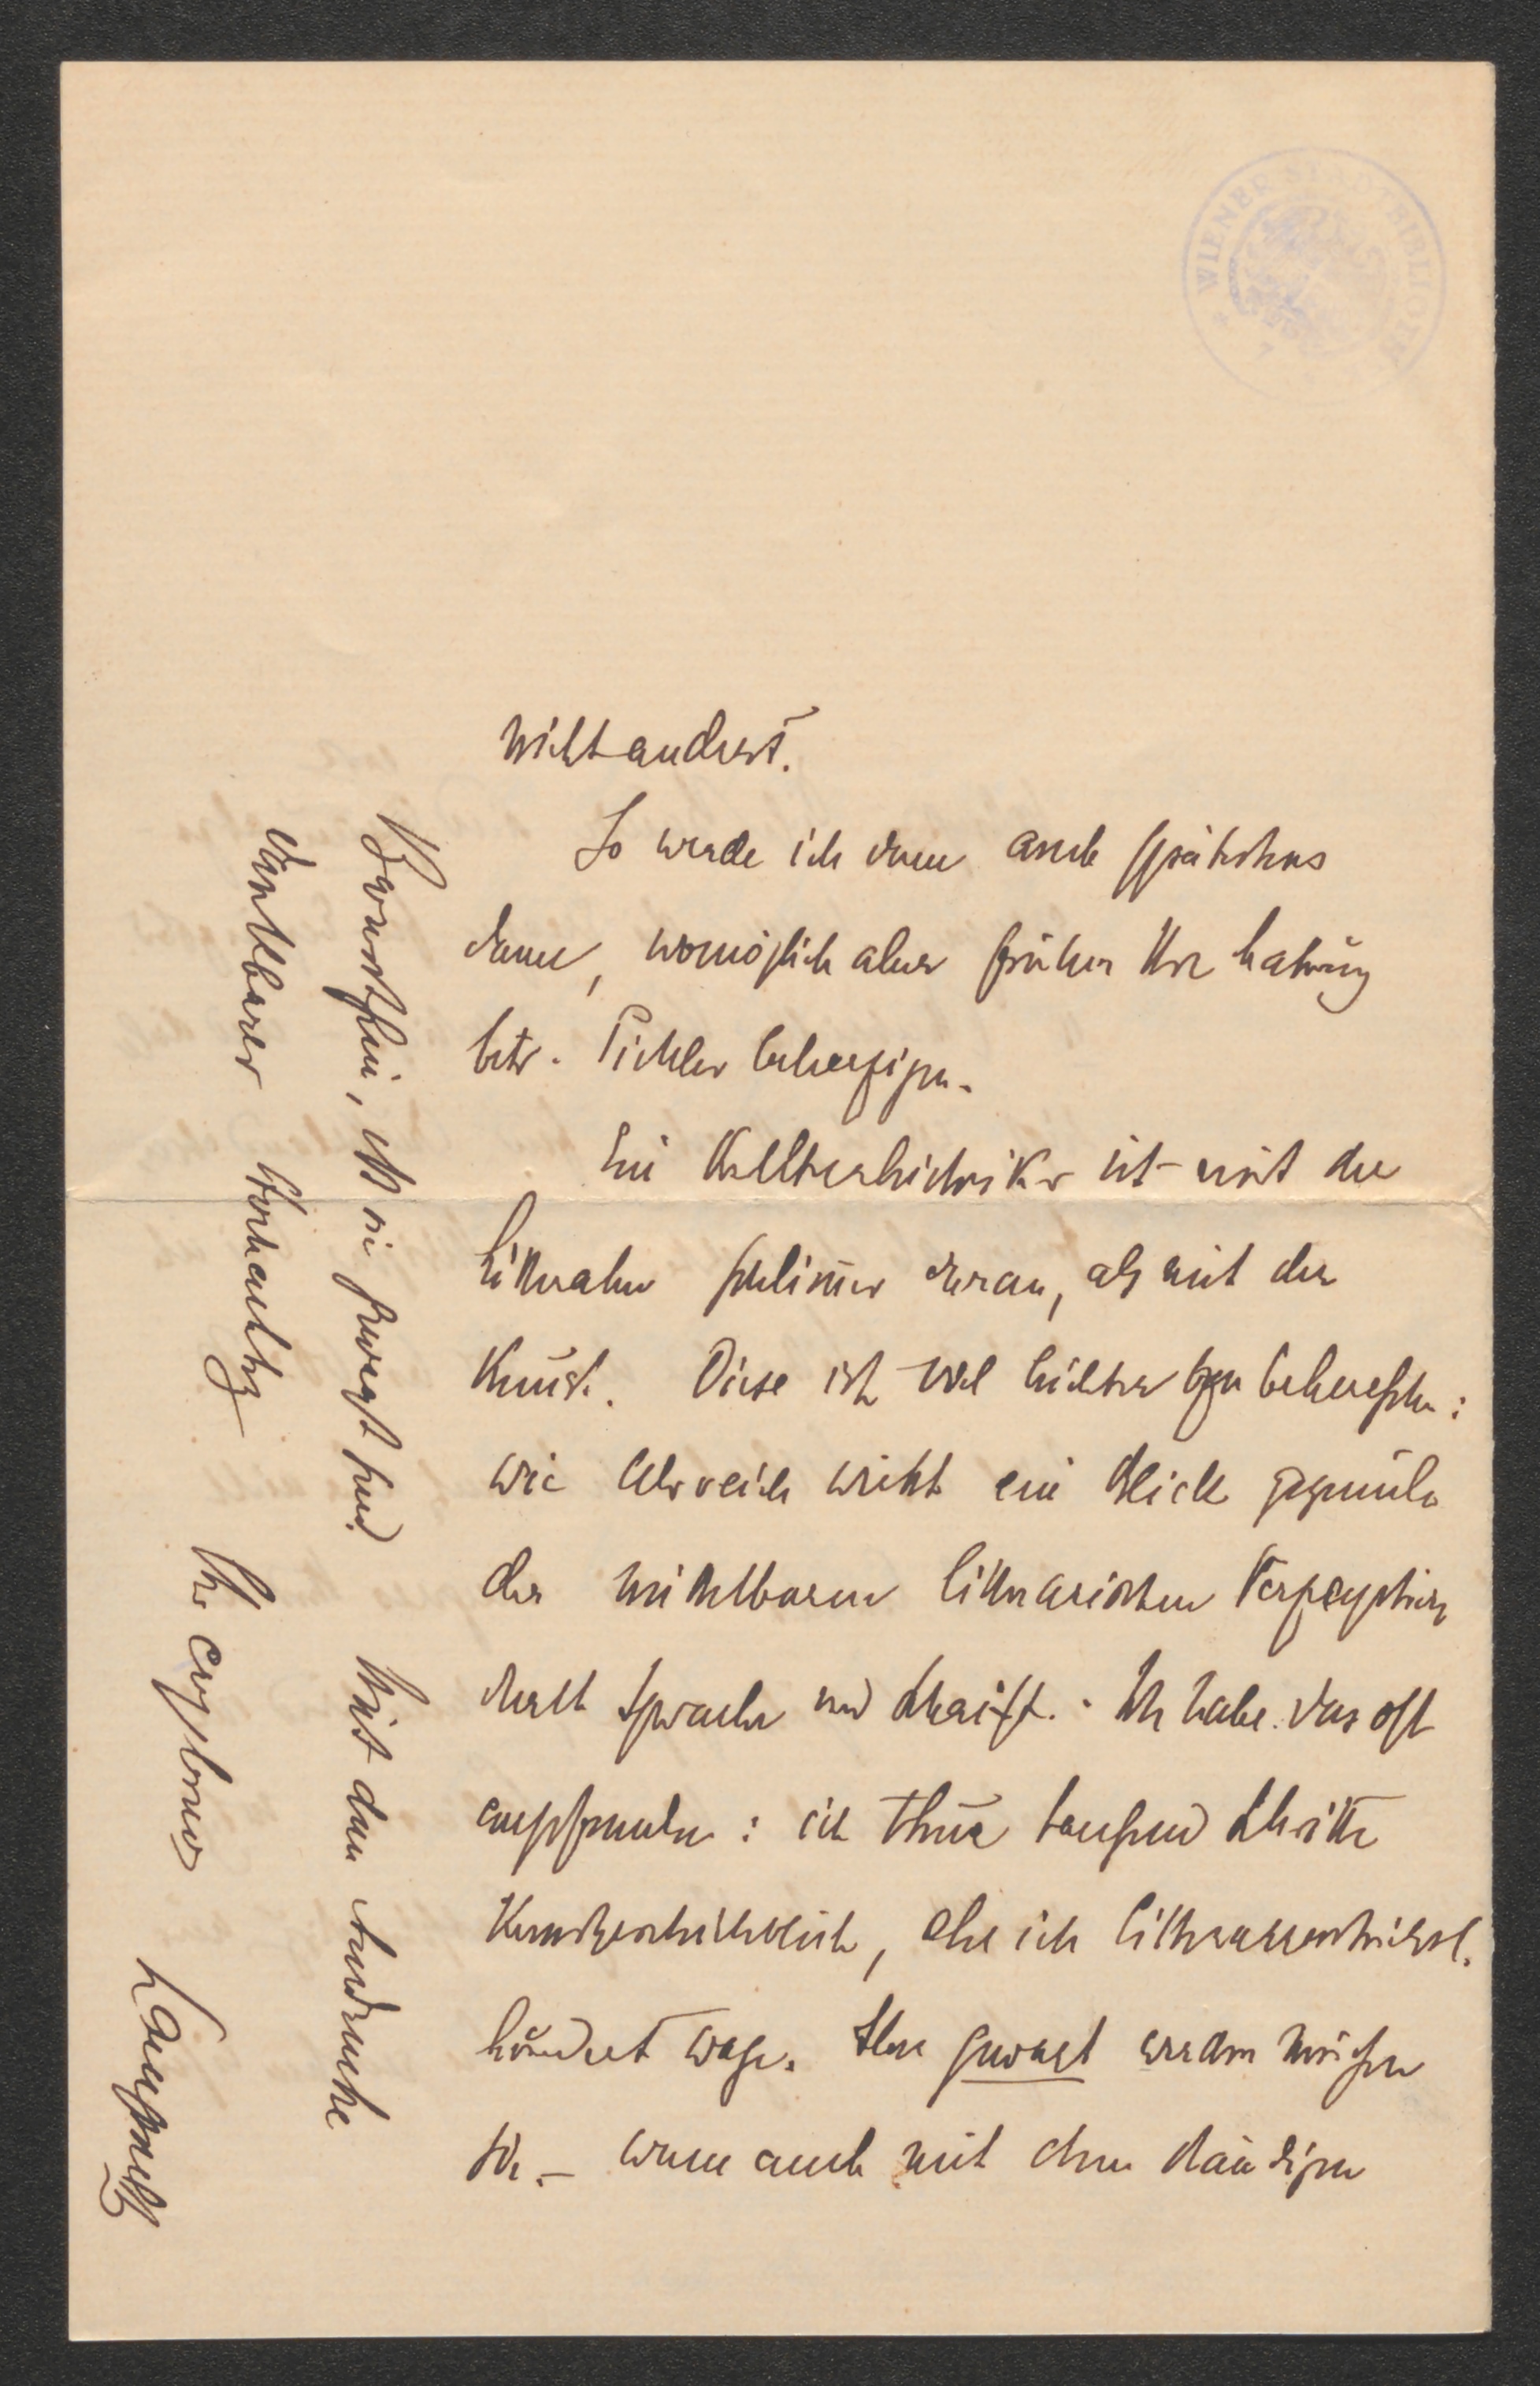 WIENER STADTBIBLIOTHEK
nicht anders.
So werde ich dann auch spätestens
dann, womöglich aber früher Ihre Mahnung
betr. Pichler beherzigen.
Ein Kulturhistoriker ist mit der
Litteratur schlimmer daran, als mit der
Kunst. Diese ist viel leichter zu beherrschen:
wie lehrreich wirkt ein Blick gegenüber
der mittelbaren litterarischen
durch Sprache und Schrift. Ich habe das oft
empfunden: ich thue tausend Schritte
kunstgeschichtlich, ehe ich litteraturgeschichtl.
hundert wage. Aber gewagt werden müssen
sie. – wenn auch mit dem ständigen
Bewusstsein, daß sie gewagt sind. Mit dem Ausdrucke
dankbarer Hochachtung
Ihr ergebener
Lamprecht